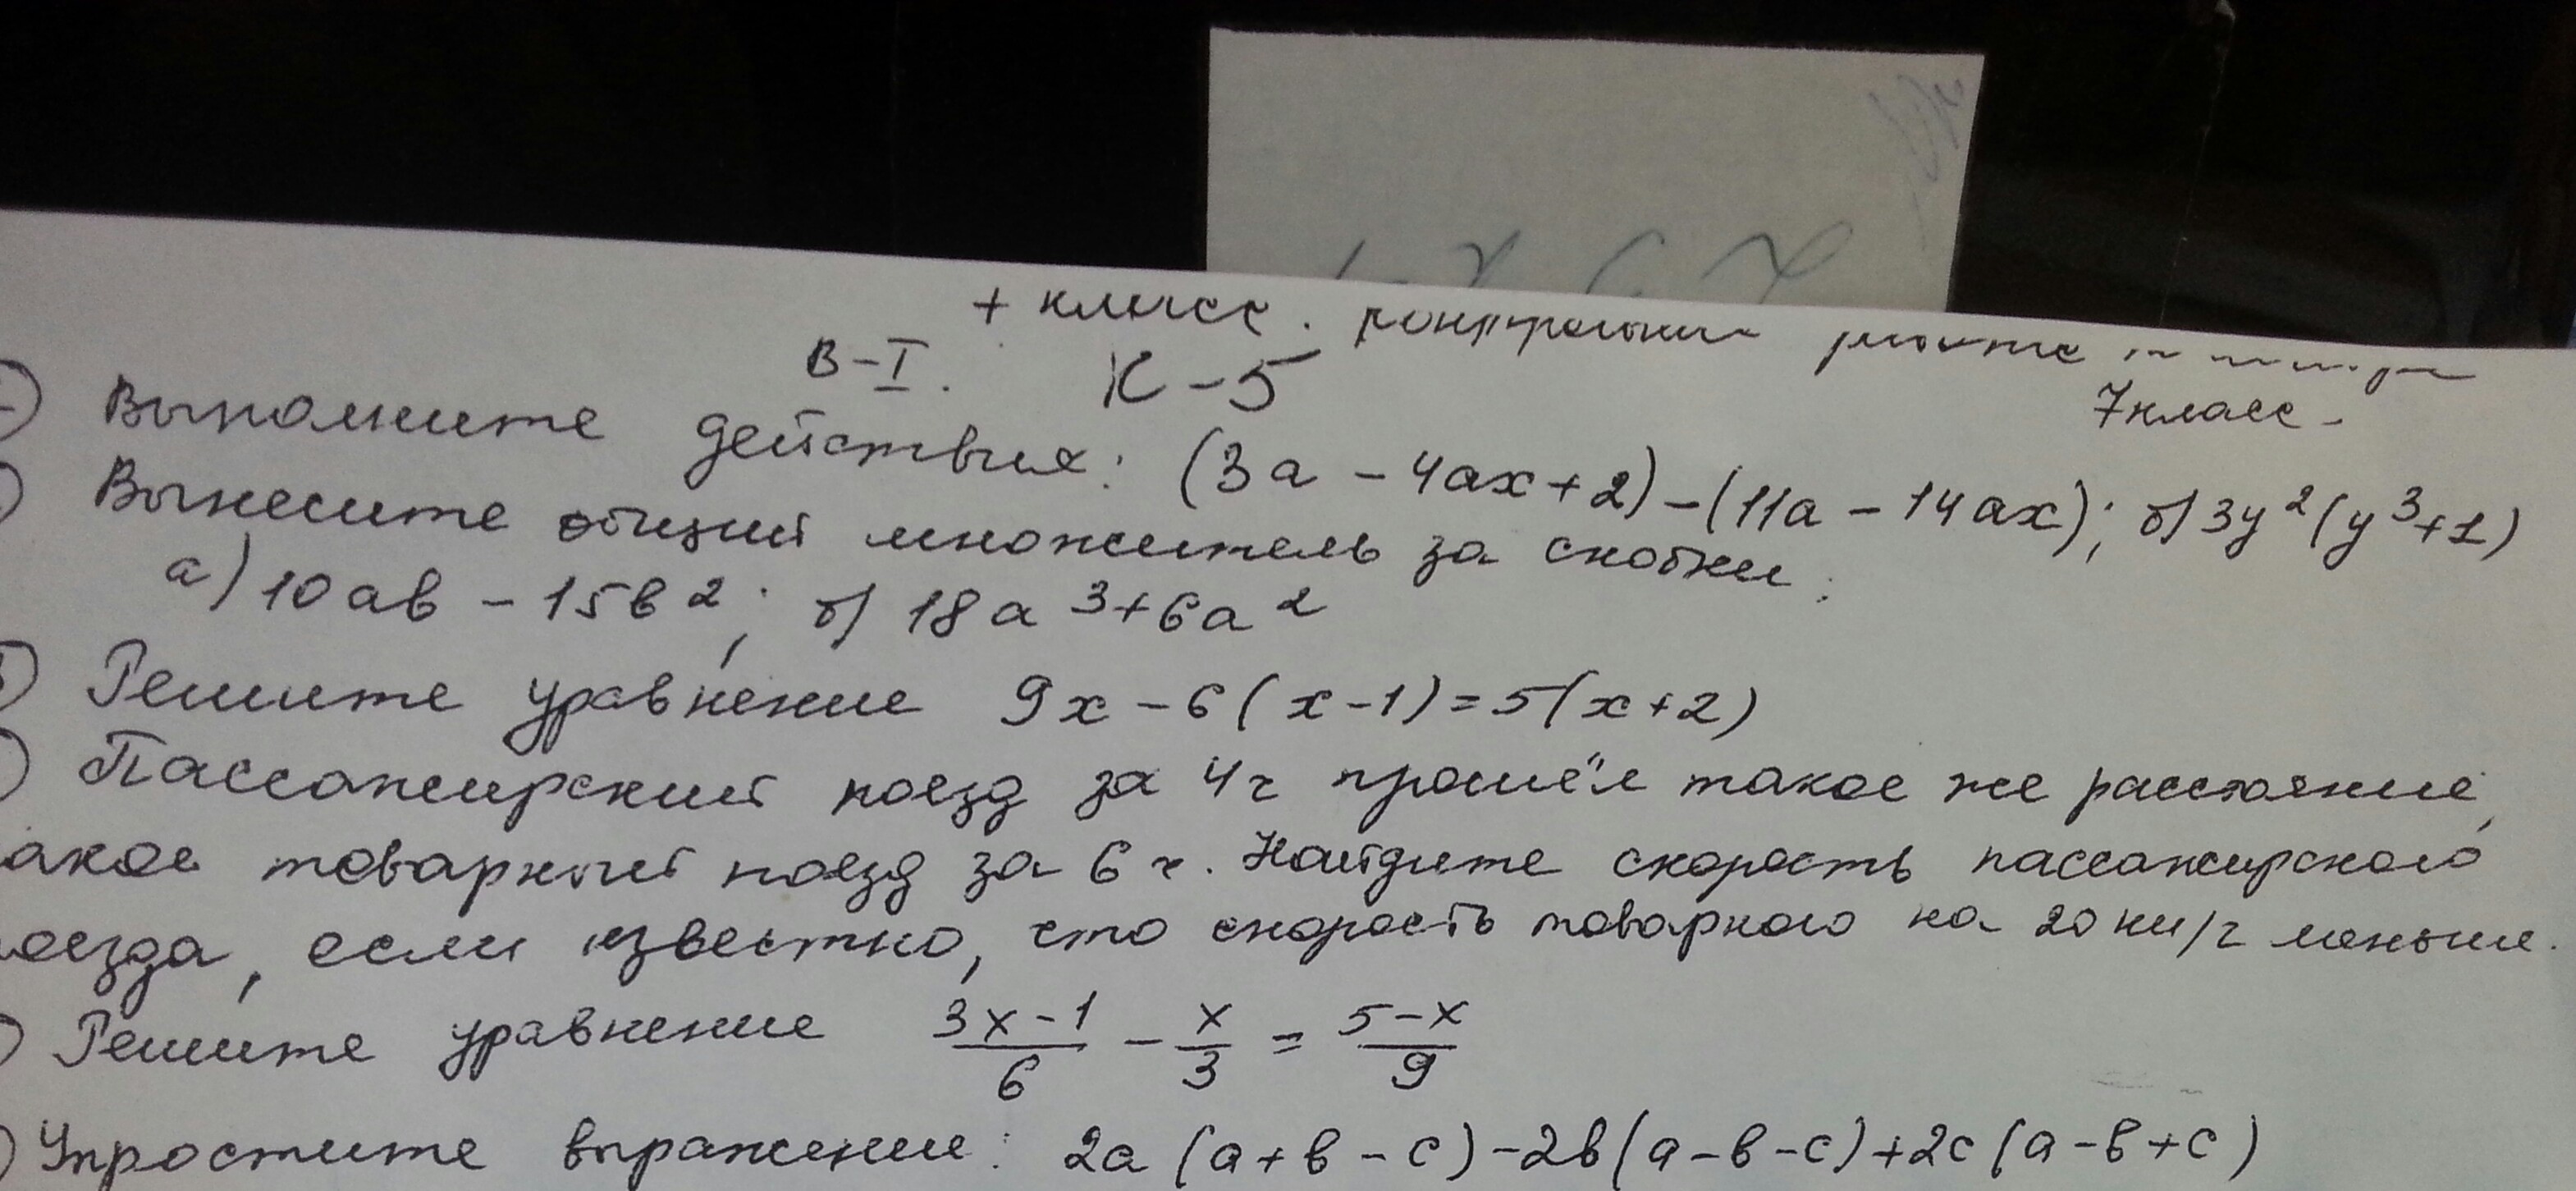 + класс. контрольная работа
В-I. К-5
7 класс.
Выполните действия: (3a - 4ax + 2) - (11a - 14ax); б) 3y²(y³+1)
Вынесите общий множитель за скобки:
а) 10ab - 15b²; б) 18a³+6a²
Решите уравнение 9x - 6(x-1) = 5(x+2)
Пассажирский поезд за 4ч прошёл такое же расстояние,
акое товарный поезд за 6 ч. Найдите скорость пассажирского
оезда, если известно, что скорость товарного на 20 км/ч меньше.
Решите уравнение (3x-1)/6 - x/3 = (5-x)/9
Упростите выражение: 2a(a+b-c)-2b(a-b-c)+2c(a-b+c)